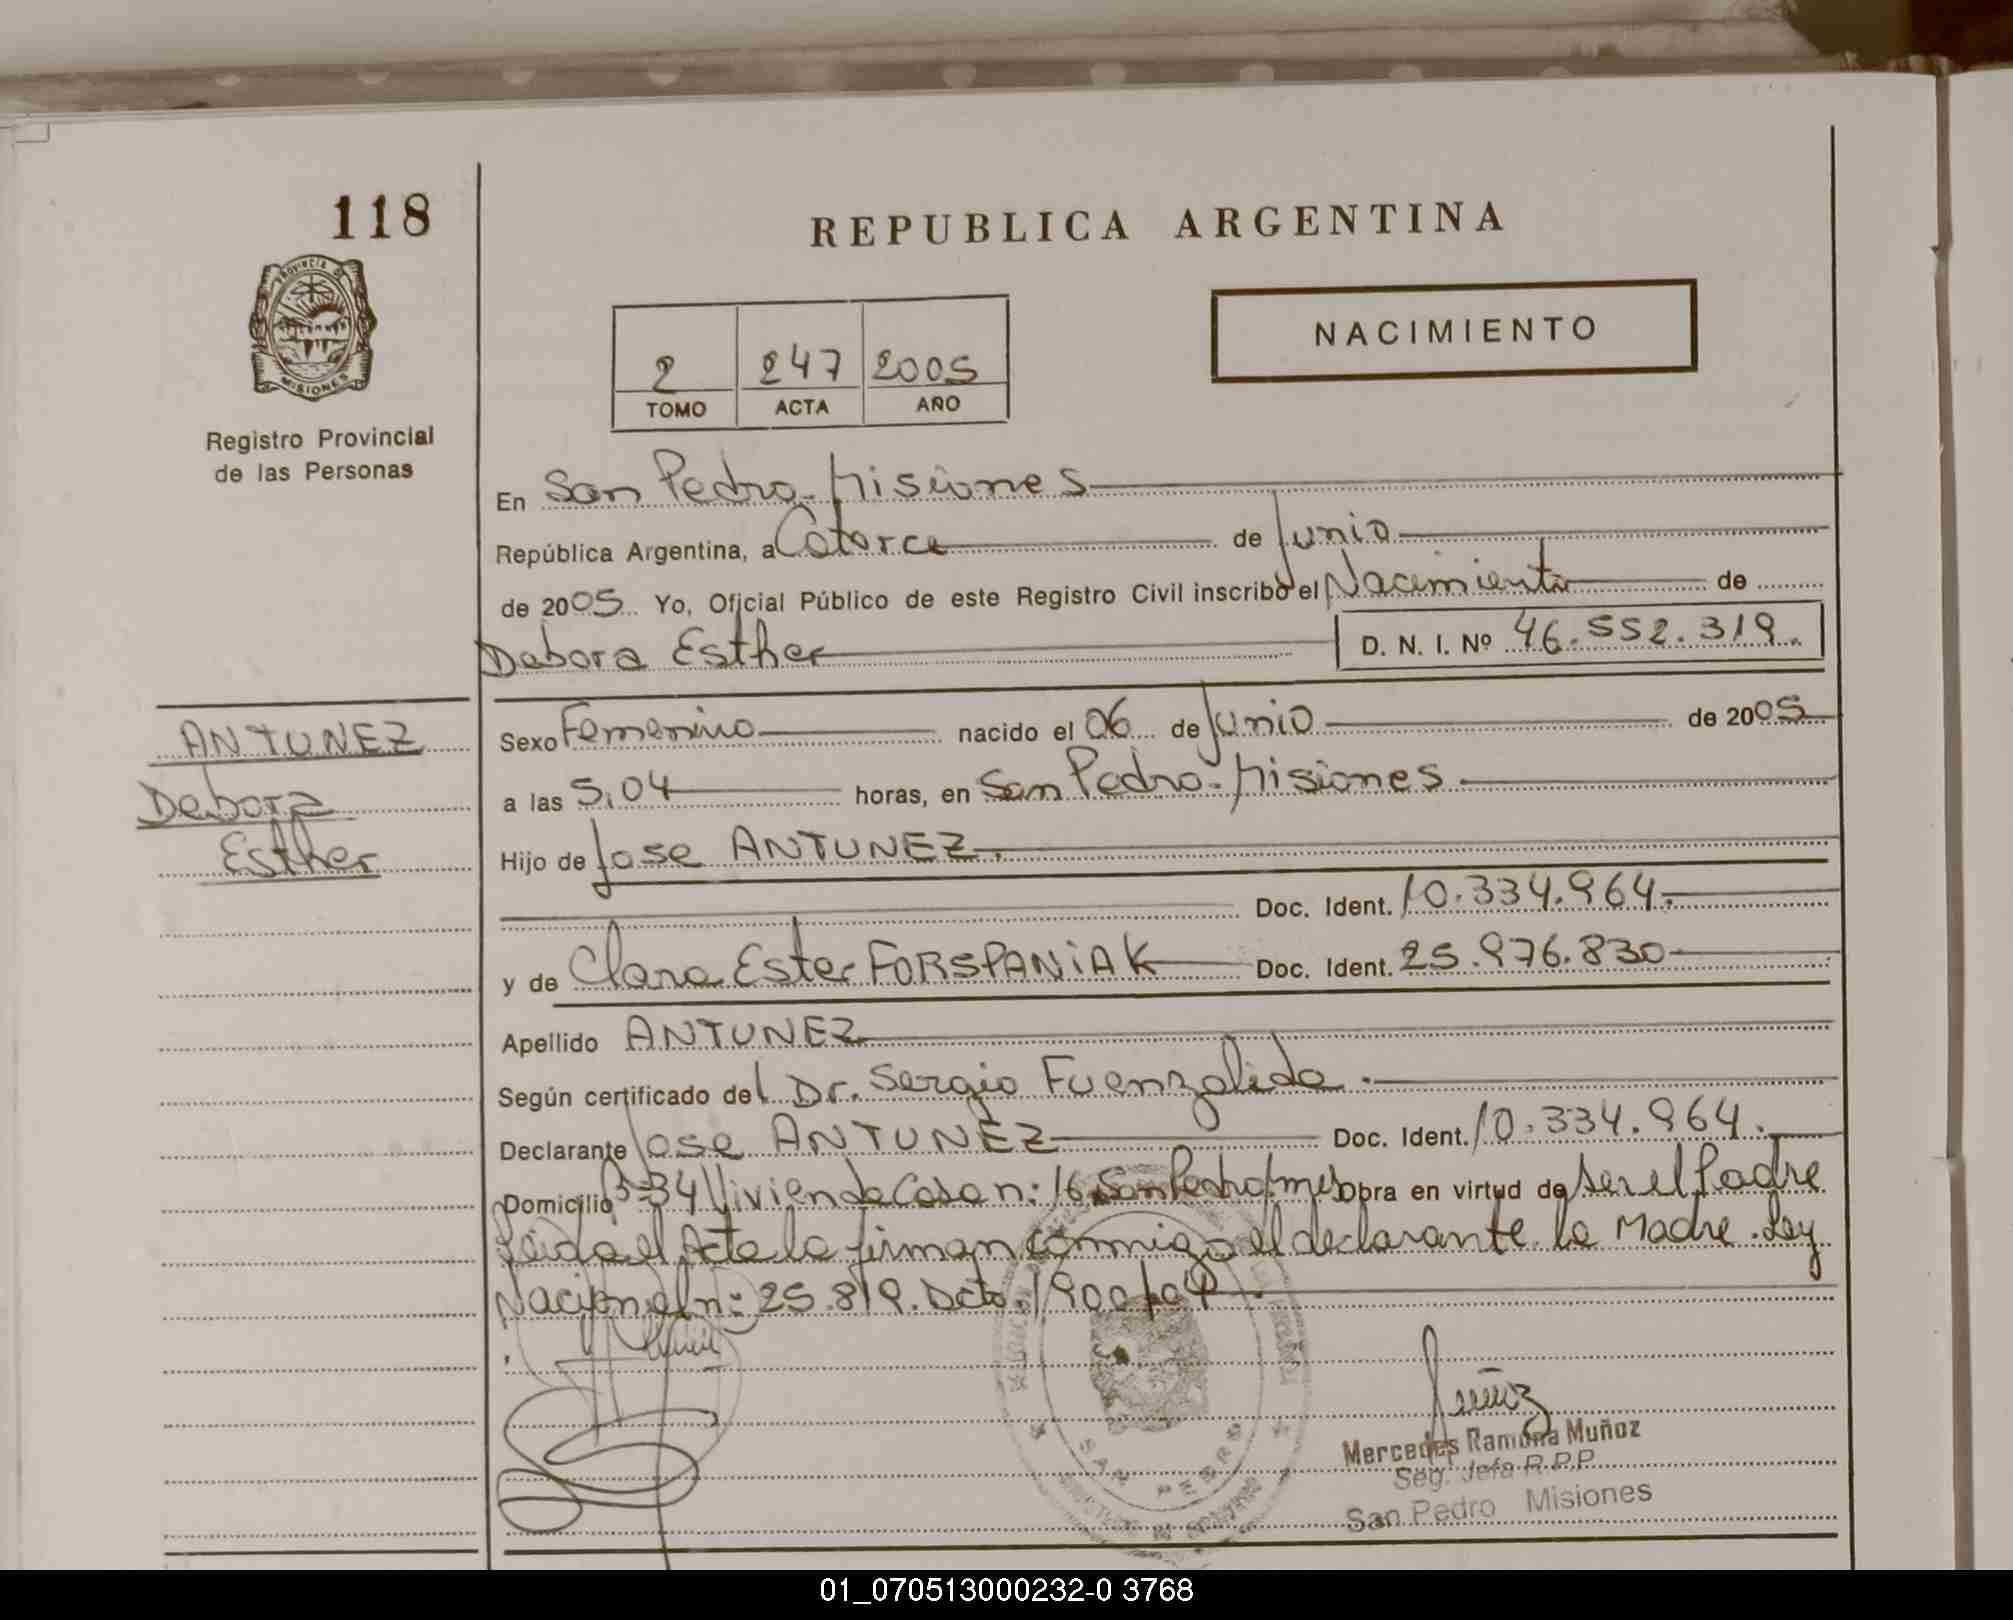 118
REPUBLICA ARGENTINA
PROVINCIA DE
MISIONES
Registro Provincial
de las Personas
2 247 2005
TOMO ACTA AÑO
NACIMIENTO
En San Pedro - Misiones
República Argentina, a Catorce de Junio
de 2005 Yo, Oficial Público de este Registro Civil inscribo el Nacimiento de
Debora Esther D. N. I. Nº 46.552.319.
ANTUNEZ
Debora
Esther
Sexo Femenino nacido el 06 de Junio de 2005
a las 5,04 horas, en San Pedro - Misiones
Hijo de Jose ANTUNEZ.
Doc. Ident. 10.334.964.
y de Clara Ester FORSPANIAK Doc. Ident. 25.976.830
Apellido ANTUNEZ
Según certificado del Dr. Sergio Fuenzalida.
Declarante Jose ANTUNEZ Doc. Ident. 10.334.964.
Domicilio Bº 34 Vivienda Casa n: 16 San Pedro Mes Obra en virtud de ser el Padre
Leida el Acta la firman conmigo el declarante. la Madre. Ley
Nacional n: 25.819. Dcto. 1900/04.
SAN PEDRO
Mercedes Ramona Muñoz
Seg. Jefa R.P.P
San Pedro Misiones
01_070513000232-0 3768